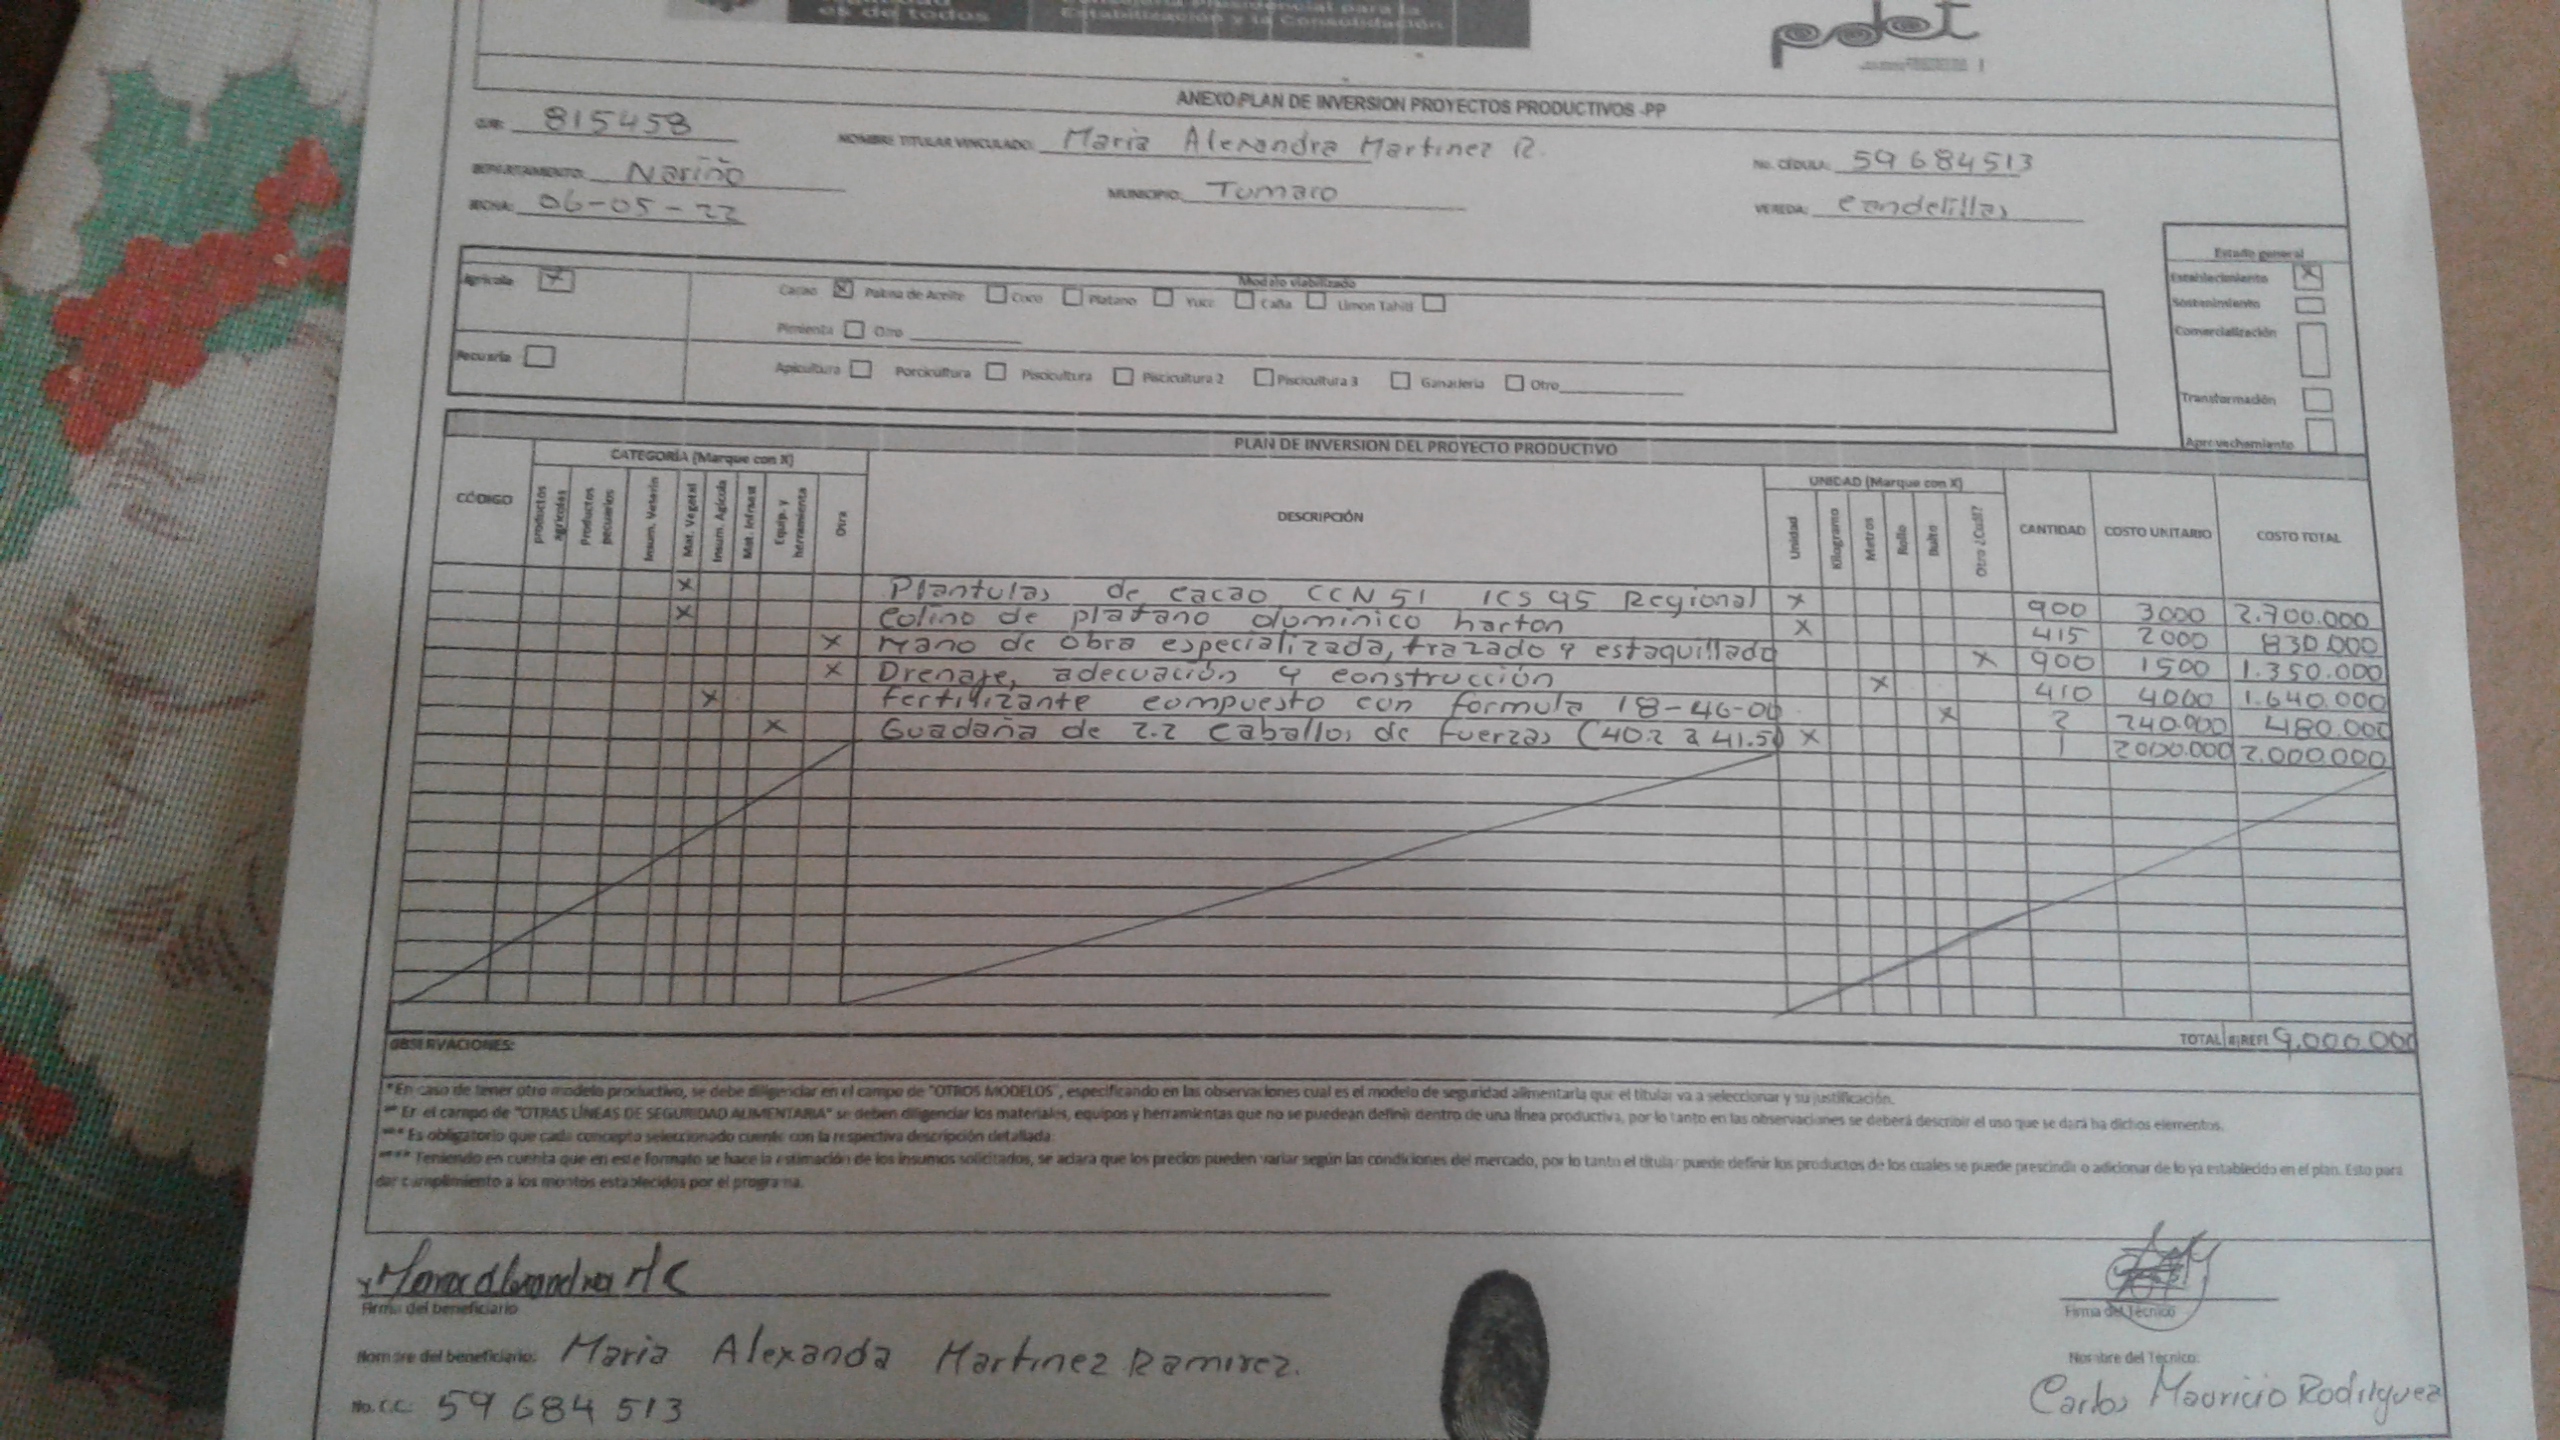 es de todos
Consejería Presidencial para la
Estabilización y la Consolidación
pdet
ANEXO PLAN DE INVERSION PROYECTOS PRODUCTIVOS -PP
CUB: 815458
NOMBRE TITULAR VINCULADO: Maria Alexandra Martinez R.
No. CÉDULA: 59684513
DEPARTAMENTO: Nariño
MUNICIPIO: Tumaco
VEREDA: Candelillas
FECHA: 06-05-22
Estado general
Establecimiento X
Sostenimiento
Comercialización
Transformación
Aprovechamiento
Modelo viabilizado
Agricola X
Cacao X Palma de Aceite Coco Platano Yuca Caña Limon Tahití
Pimienta Otro
Pecuaria
Apicultura Porcicultura Piscicultura Piscicultura 2 Piscicultura 3 Ganaderia Otro
PLAN DE INVERSION DEL PROYECTO PRODUCTIVO
CÓDIGO
CATEGORÍA (Marque con X)
productos agrícolas
Productos pecuarios
Insum. Veterin
Mat. Vegetal
Insum. Agicola
Mat. Infraest
Equip. y herramienta
Otra
DESCRIPCIÓN
UNIDAD (Marque con X)
Unidad
Kilogramo
Metros
Rollo
Bulto
Otro ¿Cuál?
CANTIDAD
COSTO UNITARIO
COSTO TOTAL
X Plantulas de cacao CCN 51 ICS 95 Regional X 900 3000 2.700.000
X Colino de platano dominico harton X 415 2000 830.000
X Mano de obra especializada, trazado y estaquillado X 900 1500 1.350.000
X Drenaje, adecuación y construcción X 410 4000 1.640.000
X Fertilizante compuesto con formula 18-46-00 X 2 240.000 480.000
X Guadaña de 2.2 Caballos de fuerzas (40.2 a 41.5) X 1 2000.000 2.000.000
TOTAL 9.000.000
OBSERVACIONES:
*En caso de tener otro modelo productivo, se debe diligenciar en el campo de "OTROS MODELOS", especificando en las observaciones cual es el modelo de seguridad alimentaria que el titular va a seleccionar y su justificación.
** En el campo de "OTRAS LÍNEAS DE SEGURIDAD ALIMENTARIA" se deben diligenciar los materiales, equipos y herramientas que no se puedean definir dentro de una línea productiva, por lo tanto en las observaciones se deberá describir el uso que se dará ha dichos elementos.
*** Es obligatorio que cada concepto seleccionado cuente con la respectiva descripción detallada.
**** Teniendo en cuenta que en este formato se hace la estimación de los insumos solicitados, se aclara que los precios pueden variar según las condiciones del mercado, por lo tanto el titular puede definir los productos de los cuales se puede prescindir o adicionar de lo ya establecido en el plan. Esto para
dar cumplimiento a los montos establecidos por el programa.
Firma del beneficiario
Firma del Técnico
Nombre del beneficiario: Maria Alexanda Martinez Ramirez.
Nombre del Técnico:
Carlos Mauricio Rodriguez
No. C.C.: 59 684 513